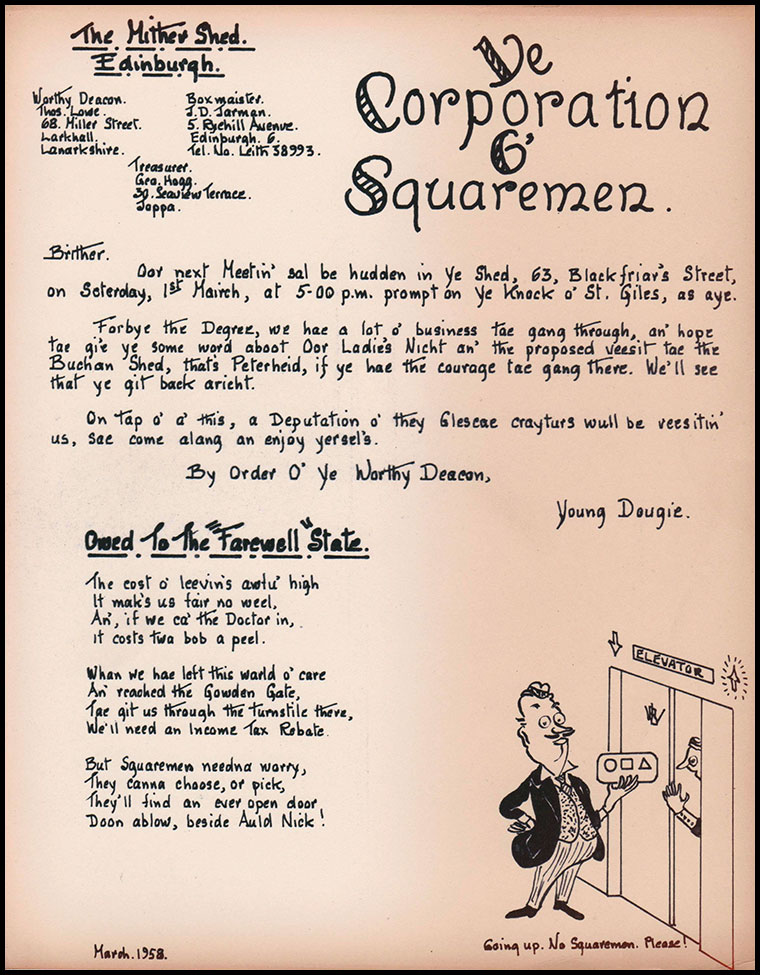 The Mither Shed.
Edinburgh.
Worthy Deacon.
Thos. Lowe.
68. Miller Street.
Larkhall.
Lanarkshire.
Boxmaister.
J.D. Jarman.
5. Ryehill Avenue.
Edinburgh. 6.
Tel. No. Leith 38993.
Treasurer.
Geo. Hogg.
30. Seaview Terrace.
Joppa.
Ye
Corporation
O'
Squaremen.
Brither.
Oor next Meetin' sal be hudden in Ye Shed, 63, Blackfriar's Street,
on Seterday, 1st Mairch, at 5-00 p.m. prompt on Ye Knock o' St. Giles, as aye.
Forbye the Degree, we hae a lot o' business tae gang through, an' hope
tae gi'e ye some word aboot Oor Ladie's Nicht an' the proposed veesit tae the
Buchan Shed, that's Peterheid, if ye hae the courage tae gang there. We'll see
that ye git back aricht.
On tap o' a' this, a Deputation o' they Glescae crayturs wull be veesitin'
us, sae come alang an enjoy yersel's.
By Order O' Ye Worthy Deacon,
Young Dougie.
Owed To The "Farewell" State.
The cost o' leevin's awfu' high
It mak's us fair no weel,
An', if we ca' the Doctor in,
it costs twa bob a peel.
Whan we hae left this warld o' care
An' reached the Gowden Gate,
Tae git us through the turnstile there,
We'll need an Income Tax Rebate.
But Squaremen needna worry,
They canna choose, or pick,
They'll find an ever open door
Doon ablow, beside Auld Nick!
ELEVATOR
March. 1958.
Going up. No Squaremen. Please!